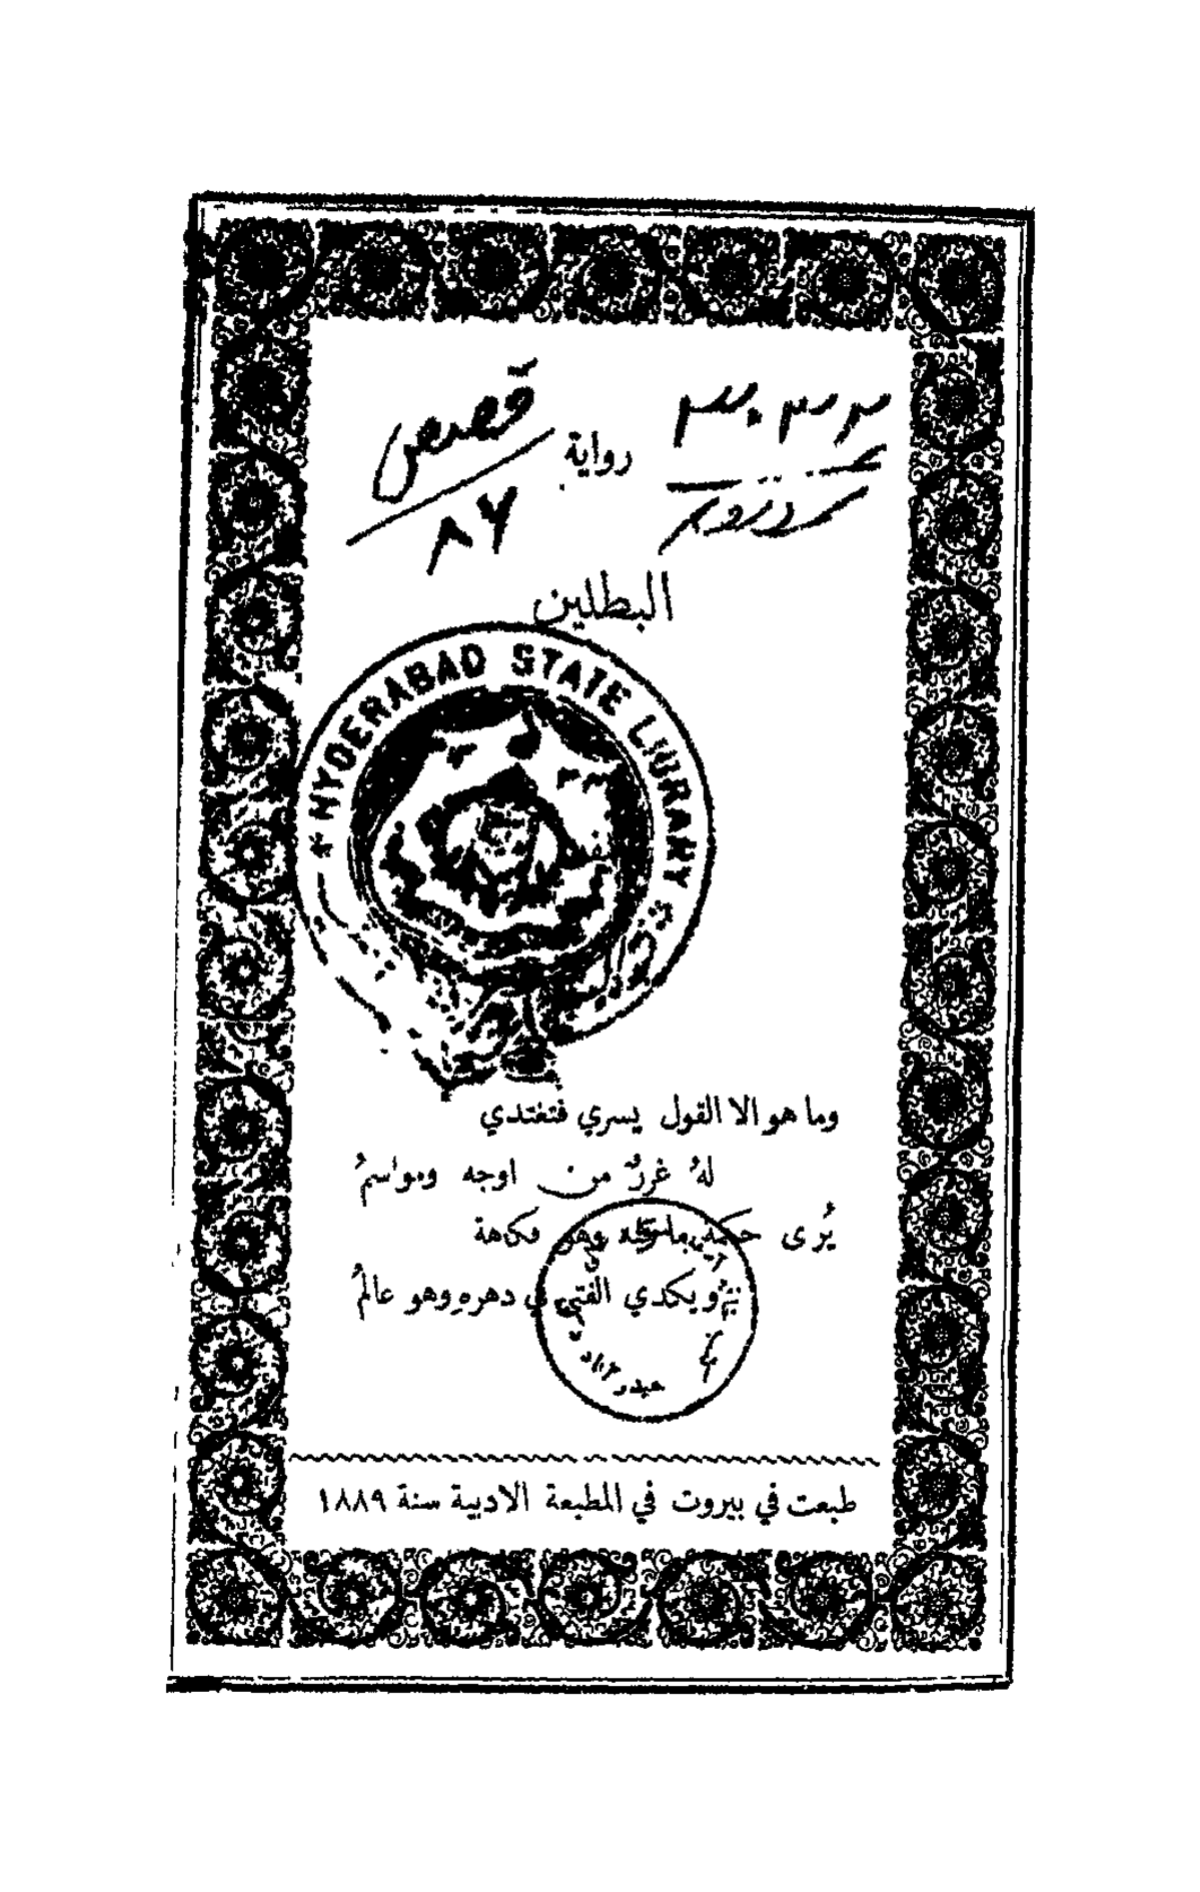 قصص
٨٦
رواية
البطلين
HYDERABAD STATE LIBRARY
وما هو الا القول يسري فتغتدي
لهُ غررٌ من اوجه ومواسمُ
يُرى حكمة ما فيه وهو فكاهة
ويكدي الفتى في دهرهِ وهو عالمُ
حيدرآباد
طبعت في بيروت في المطبعة الادبية سنة ١٨٨٩